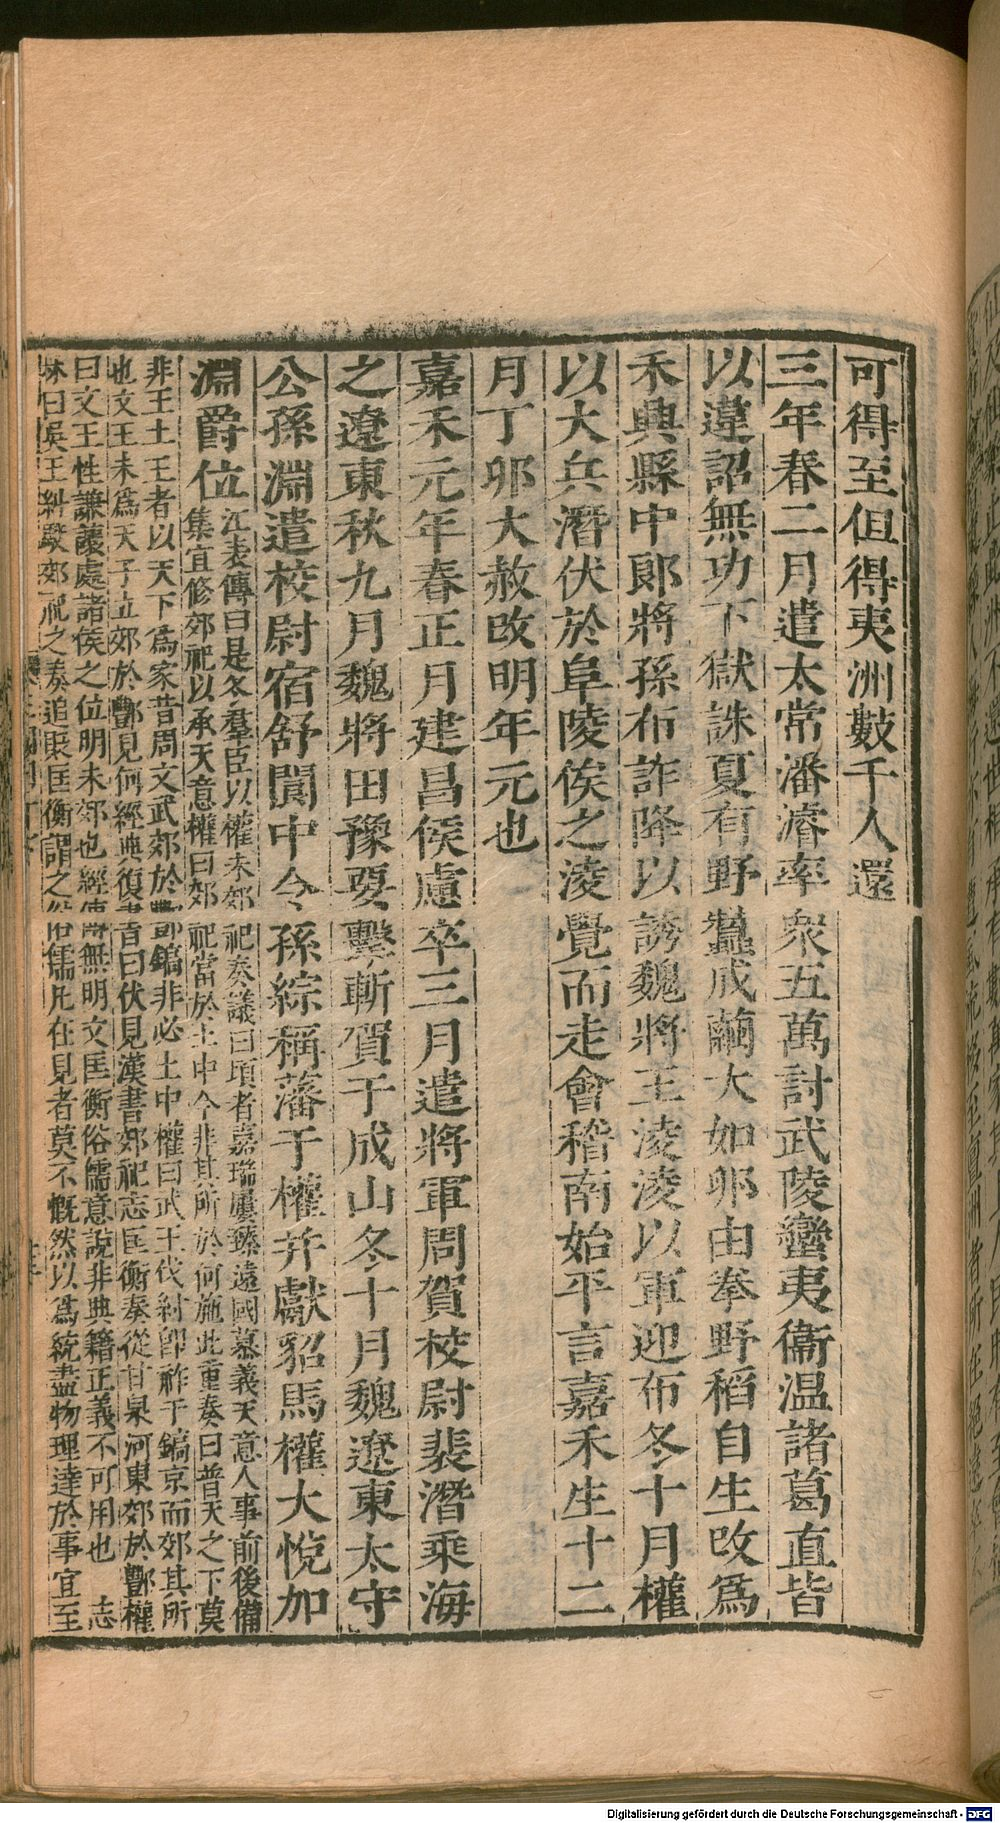 可得至但得夷洲數千人還
三年春二月遣太常潘濬率衆五萬討武陵蠻夷衞温諸葛直皆
以違詔無功下獄誅夏有野蠶成繭大如卵由拳野稻自生改爲
禾興縣中郎將孫布詐降以誘魏將王淩淩以軍迎布冬十月權
以大兵潛伏於阜陵俟之淩覺而走會稽南始平言嘉禾生十二
月丁卯大赦改明年元也
嘉禾元年春正月建昌侯慮卒三月遣將軍周賀校尉裴潛乘海
之遼東秋九月魏將田豫要擊斬賀于成山冬十月魏遼東太守
公孫淵遣校尉宿舒閬中令孫綜稱藩于權并獻貂馬權大悅加
淵爵位
江表傳曰是冬羣臣以權未郊祀奏議曰頃者嘉瑞屢臻遠國慕義天意人事前後備
集宜修郊祀以承天意權曰郊祀當於土中今非其所於何施此重奏曰普天之下莫
非王土王者以天下爲家昔周文武郊於酆鎬非必土中權曰武王伐紂卽祚于鎬京而郊其所
也文王未爲天子立郊於酆見何經典復書曰伏見漢書郊祀志匡衡奏從甘泉河東郊於酆權
曰文王性謙讓處諸侯之位明未郊也經傳無明文匡衡俗儒意說非典籍正義不可用也 志
林曰吳王糾駮郊祀之奏追貶匡衡謂之俗儒凡在見者莫不慨然以爲統盡物理達於事宜至
Digitalisierung gefördert durch die Deutsche Forschungsgemeinschaft - DFG